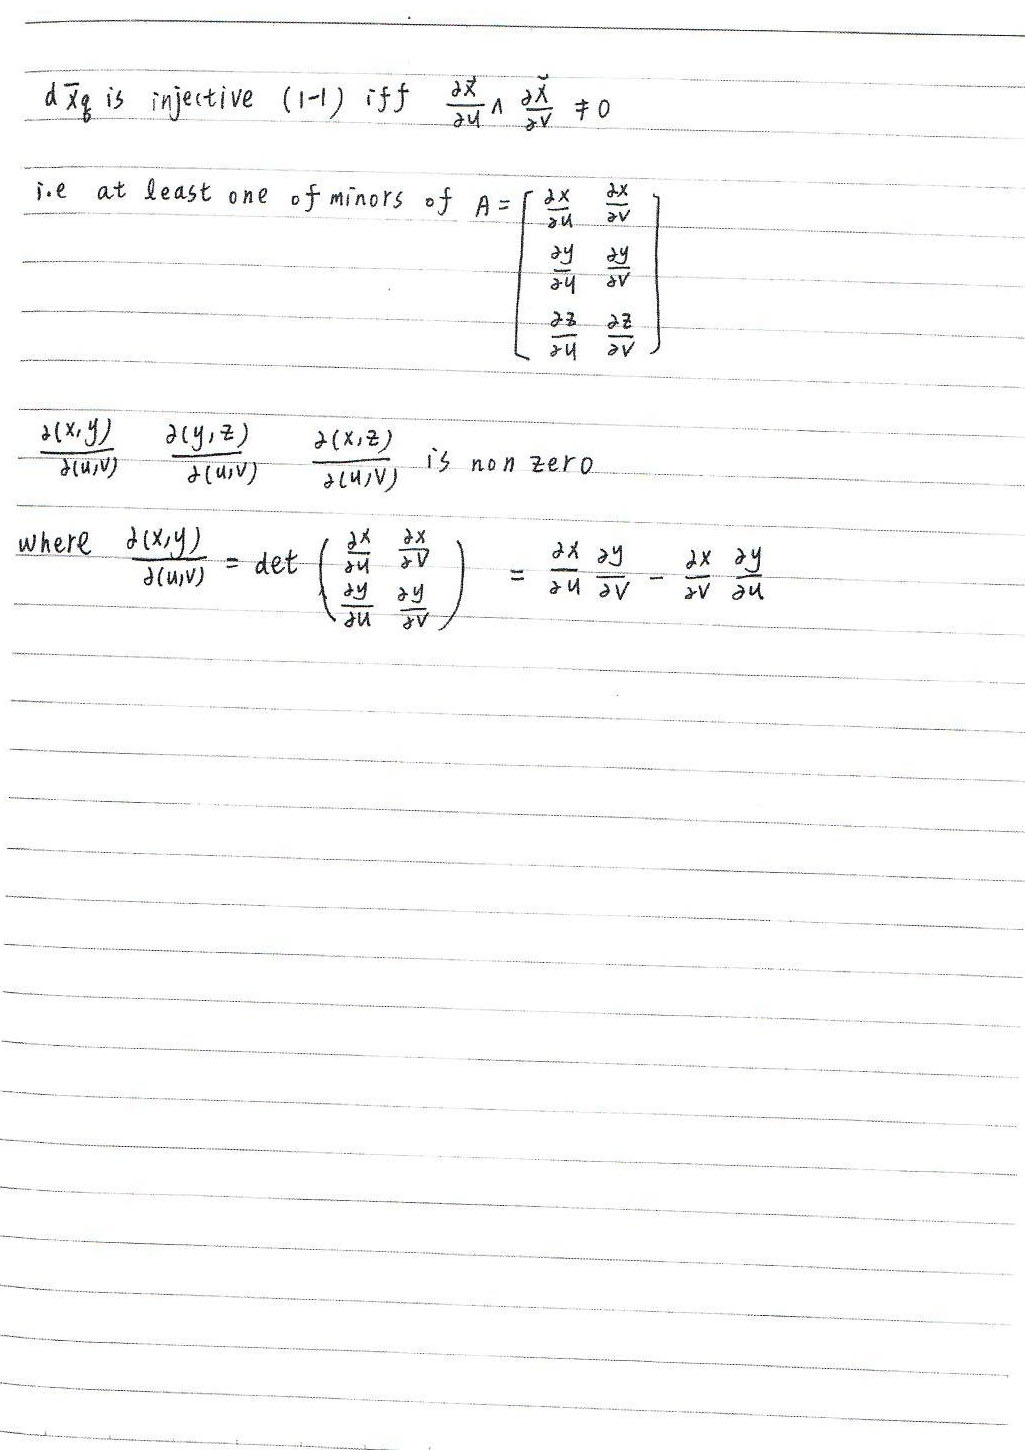 d x̄_q is injective (1-1) iff ∂x⃗/∂u ∧ ∂x⃗/∂v ≠ 0
i.e at least one of minors of A = [ ∂x/∂u ∂x/∂v
∂y/∂u ∂y/∂v
∂z/∂u ∂z/∂v ]
∂(x,y)/∂(u,v) ∂(y,z)/∂(u,v) ∂(x,z)/∂(u,v) is non zero
where ∂(x,y)/∂(u,v) = det ( ∂x/∂u ∂x/∂v
∂y/∂u ∂y/∂v ) = ∂x/∂u ∂y/∂v - ∂x/∂v ∂y/∂u